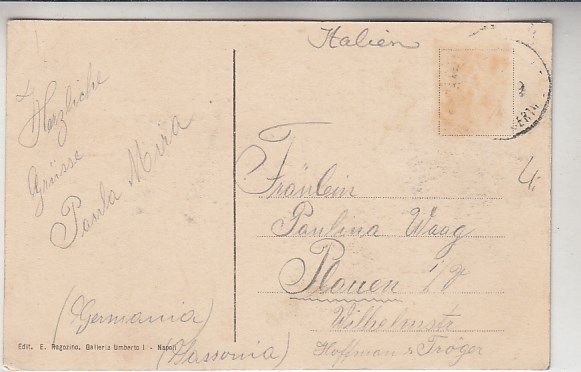 Italien
Herzliche
Grüsse
Paula Mira
Fräulein
Paulina Waag
Plauen i/V
Wilhelmstr
Hoffman & Tröger
(Germania)
(Sassonia)
Edit. E. Ragozino, Galleria Umberto I - Napoli